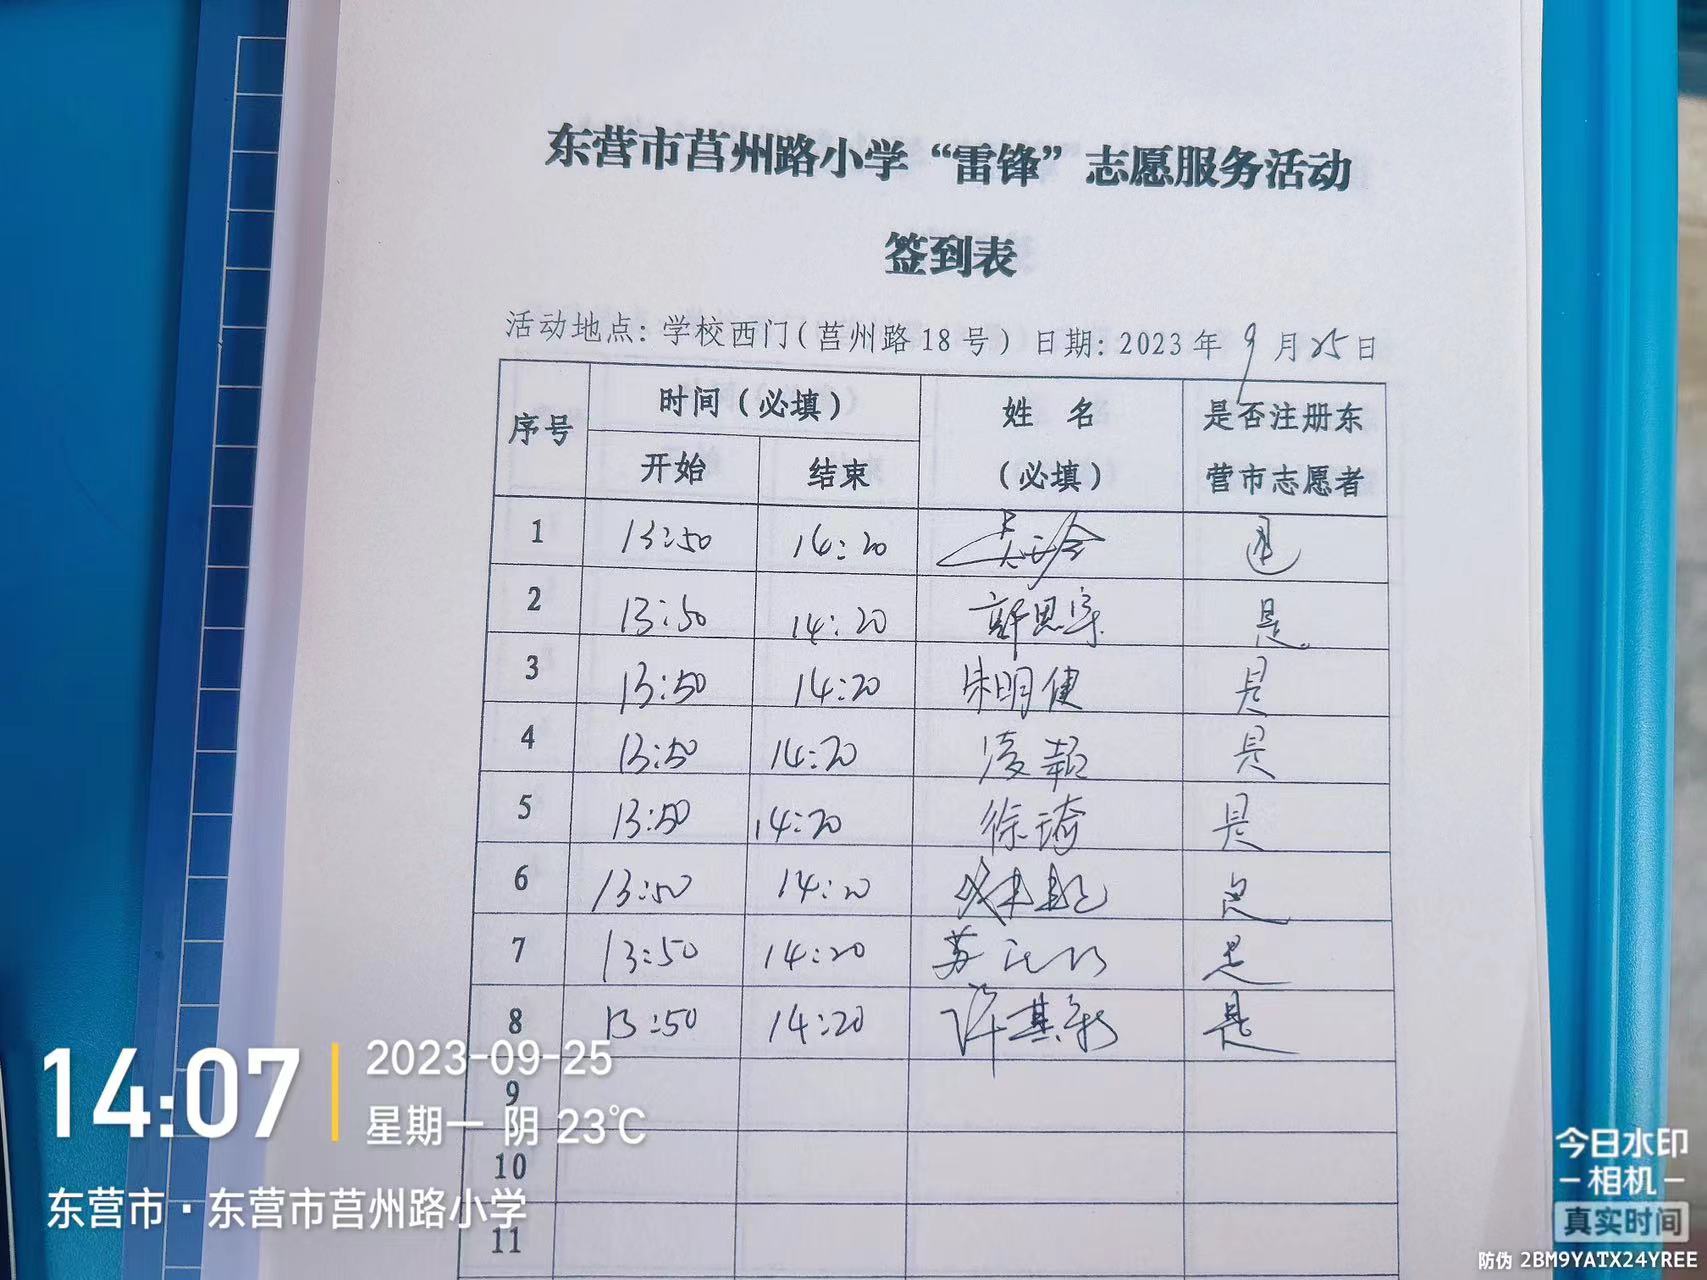 东营市莒州路小学“雷锋”志愿服务活动
签到表
活动地点：学校西门（莒州路18号）日期：2023年9月25日
序号 时间（必填） 姓 名（必填） 是否注册东营市志愿者
开始 结束
1 13:50 14:20 是
2 13:50 14:20 郭思宇 是
3 13:50 14:20 朱明健 是
4 13:50 14:20 凌超 是
5 13:50 14:20 徐琦 是
6 13:50 14:20 是
7 13:50 14:20 苏 是
8 13:50 14:20 许基新 是
9
10
11
14:07
2023-09-25
星期一 阴 23℃
东营市·东营市莒州路小学
今日水印
相机
真实时间
防伪 2BM9YATX24YREE